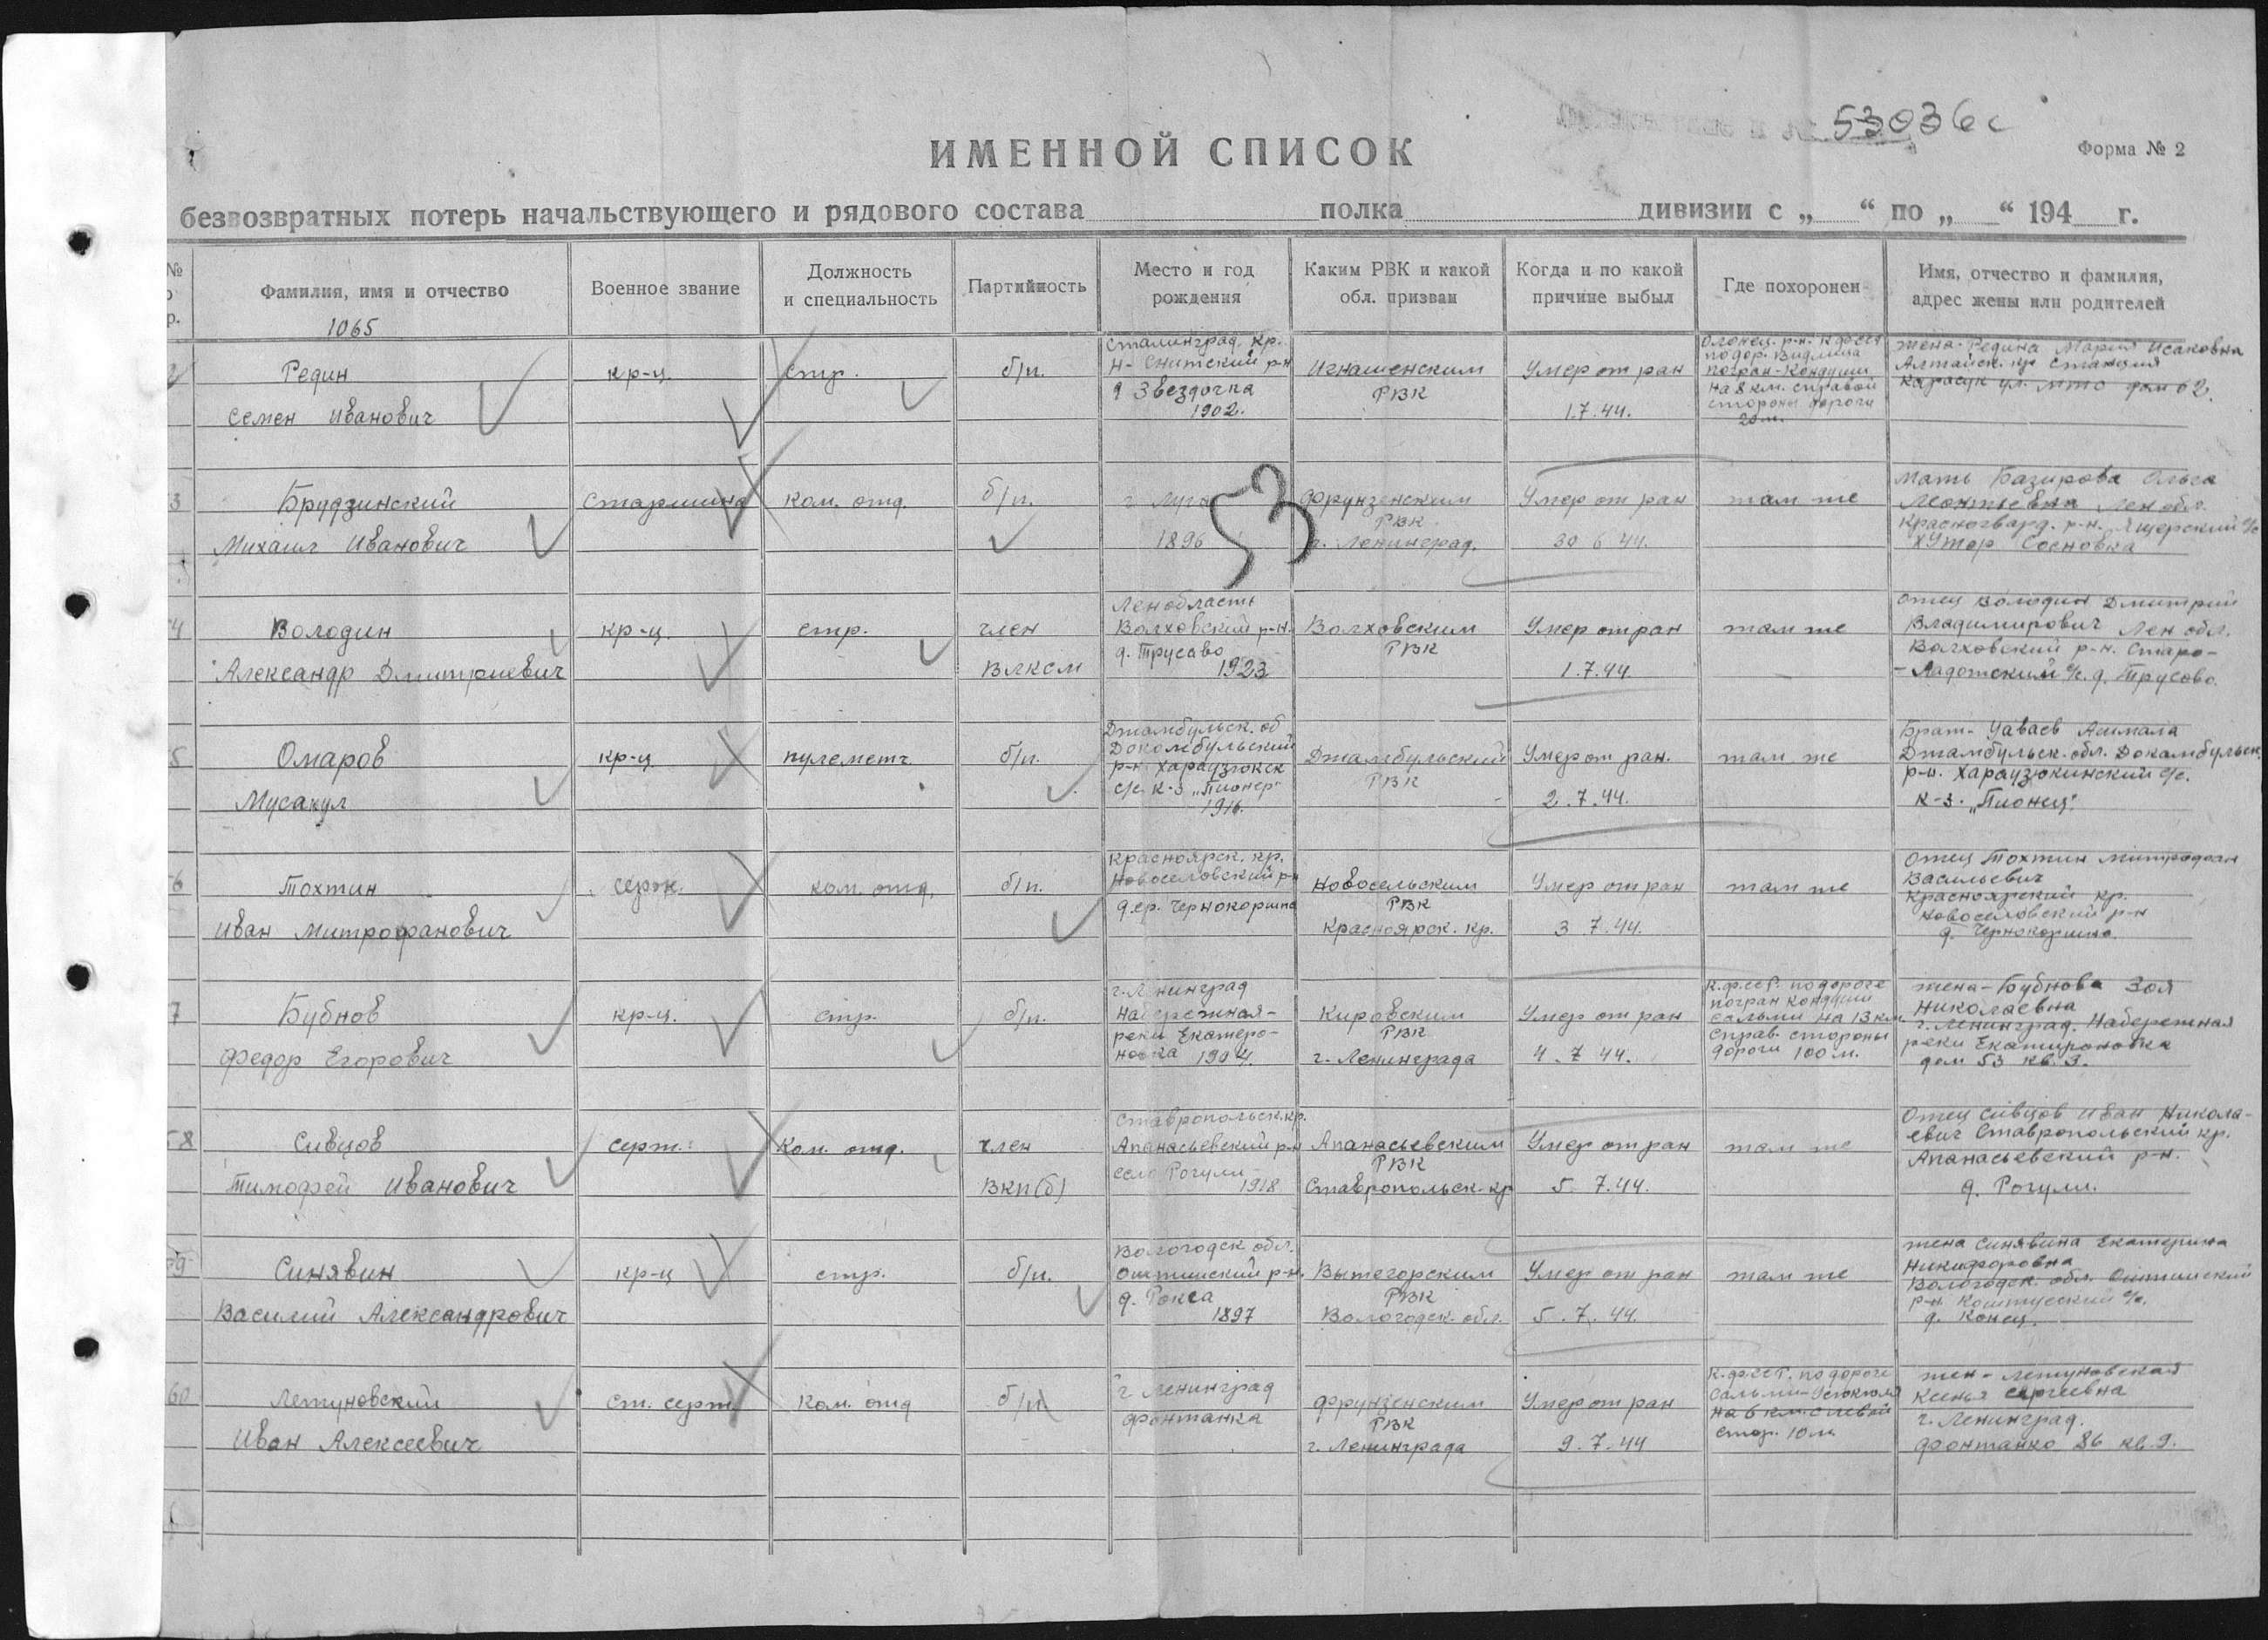 53036с
ИМЕННОЙ СПИСОК
Форма № 2
безвозвратных потерь начальствующего и рядового состава полка дивизии с „ “ по „ “ 194 г.
№ Фамилия, имя и отчество Военное звание Должность и специальность Партийность Место и год рождения Каким РВК и какой обл. призван Когда и по какой причине выбыл Где похоронен Имя, отчество и фамилия, адрес жены или родителей
1065
Редин
Семен Иванович
кр-ц.
стр.
б/п.
Сталинград. кр.
Н-Снитский р-н
д Звездочка
1902.
Игнашенским
РВК
Умер от ран
1.7.44.
Олонец. р-н. КФССР
по дор. Видлица
погран-Кондуши
на 8 км. справой
стороны дороги
20 м.
жена-Редина Мария Исаковна
Алтайск. кр станция
Карасук ул. МТС дом 62.
3
Брудзинский
Михаил Иванович
старшина
ком. отд.
б/п.
г Луга
1896
53
Фрунзенским
РВК
г. Ленинград.
Умер от ран
30 6 44.
там же
Мать Базирова Ольга
Леонтьевна Лен обл.
Красногвард. р-н. Ящерский с/с
хутор Сосновка
4
Володин
Александр Дмитриевич
кр-ц.
стр.
член
ВЛКСМ
Ленобласть
Волховский р-н.
д. Трусово
1923
Волховским
РВК
Умер от ран
1.7.44.
там же
отец Володин Дмитрий
Владимирович Лен обл.
Волховский р-н. Старо-
-Ладожский с/с. д. Трусово.
5
Омаров
Мусакул
кр-ц
пулеметч.
б/п.
Джамбульск. об
Докомбульский
р-н. Хараузюкск
с/с. к-з „Пионер“
1916.
Джамбульский
РВК
Умер от ран.
2.7.44.
там же
Брат-Уаваев Ашмала
Джамбульск. обл. Докамбульск.
р-н. Хараузюкинский с/с.
к-з. „Пионер“.
6
Тохтин
Иван Митрофанович
серж.
ком. отд.
б/п.
Красноярск. кр.
Новоселовский р-н
дер. Чернокоршна
Новосельским
РВК
Красноярск. кр.
Умер от ран
3 7.44.
там же
отец Тохтин Митрофан
Васильевич
Красноярский кр.
Новоселовский р-н
д. Чернокоршна.
7
Бубнов
Федор Егорович
кр-ц.
стр.
б/п.
г. Ленинград
Набережная-
реки Екатеро-
новка 1904.
Кировским
РВК
г. Ленинграда
Умер от ран
4.7 44.
К.ФССР. по дороге
погран Кондуши
Сальми на 13 км.
справ. стороны
дороги 100 м.
жена-Бубнова Зоя
Николаевна
г. Ленинград. Набережная
реки Екатироновка
дом 53 кв. 3.
58
Сивцов
Тимофей Иванович
серж.
Ком. отд.
член
ВКП(б)
Ставропольск. кр.
Апанасьевский р-н
село Рогули
1918
Апанасьевским
РВК
Ставропольск. кр
Умер от ран
5 7.44.
там же
Отец Сивцов Иван Никола-
евич Ставропольский кр.
Апанасьевский р-н.
д. Рогули.
59
Синявин
Василий Александрович
кр-ц
стр.
б/п.
Вологодск обл.
Оштинский р-н.
д. Рокса
1897
Вытегорским
РВК
Вологодск. обл.
Умер от ран
5.7.44.
там же
жена Синявина Екатерина
Никифоровна
Вологодск. обл. Оштинский
р-н. с/с.
д. Конец.
60
Летуновский
Иван Алексеевич
ст. серж.
Ком. отд
б/п
г Ленинград
Фонтанка
Фрунзенским
РВК
г. Ленинграда
Умер от ран
9.7.44
К.ФССР. по дороге
на 6 км с левой
стор. 10 м
жен-Летуновская
Ксенья Сергеевна
г. Ленинград.
Фонтанко 86 кв. 9.